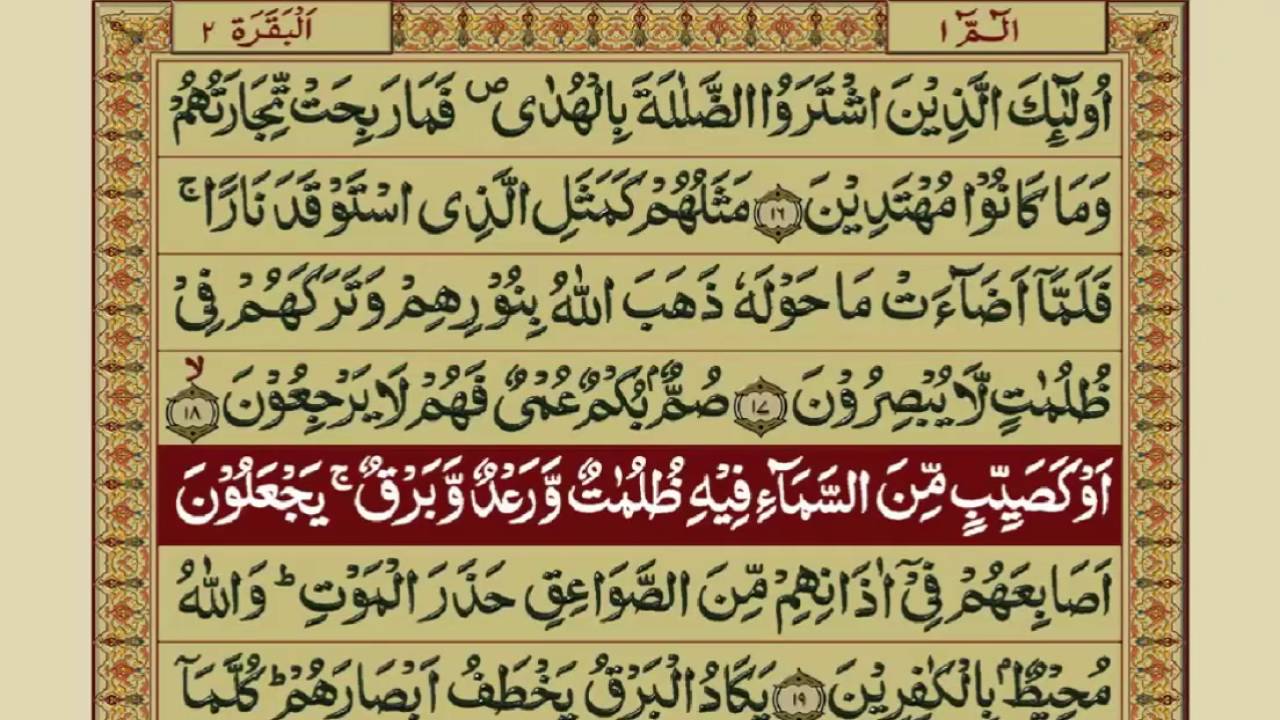 الٓمّٓ ۱
اَلْبَقَرَة ۲
اُولٰٓئِكَ الَّذِيْنَ اشْتَرَوُا الضَّلٰلَةَ بِالْهُدٰى ۪ فَمَا رَبِحَتْ تِّجَارَتُهُمْ
وَمَا كَانُوْا مُهْتَدِيْنَ ۝۱۶ مَثَلُهُمْ كَمَثَلِ الَّذِى اسْتَوْقَدَ نَارًا ۚ
فَلَمَّآ اَضَآءَتْ مَا حَوْلَهٗ ذَهَبَ اللّٰهُ بِنُوْرِهِمْ وَتَرَكَهُمْ فِىْ
ظُلُمٰتٍ لَّا يُبْصِرُوْنَ ۝۱۷ صُمٌّۢ بُكْمٌ عُمْىٌ فَهُمْ لَا يَرْجِعُوْنَ ۝۱۸ ۙ
اَوْ كَصَيِّبٍ مِّنَ السَّمَآءِ فِيْهِ ظُلُمٰتٌ وَّرَعْدٌ وَّبَرْقٌ ۚ يَجْعَلُوْنَ
اَصَابِعَهُمْ فِىْٓ اٰذَانِهِمْ مِّنَ الصَّوَاعِقِ حَذَرَ الْمَوْتِ ؕ وَاللّٰهُ
مُحِيْطٌۢ بِالْكٰفِرِيْنَ ۝۱۹ يَكَادُ الْبَرْقُ يَخْطَفُ اَبْصَارَهُمْ ؕ كُلَّمَآ